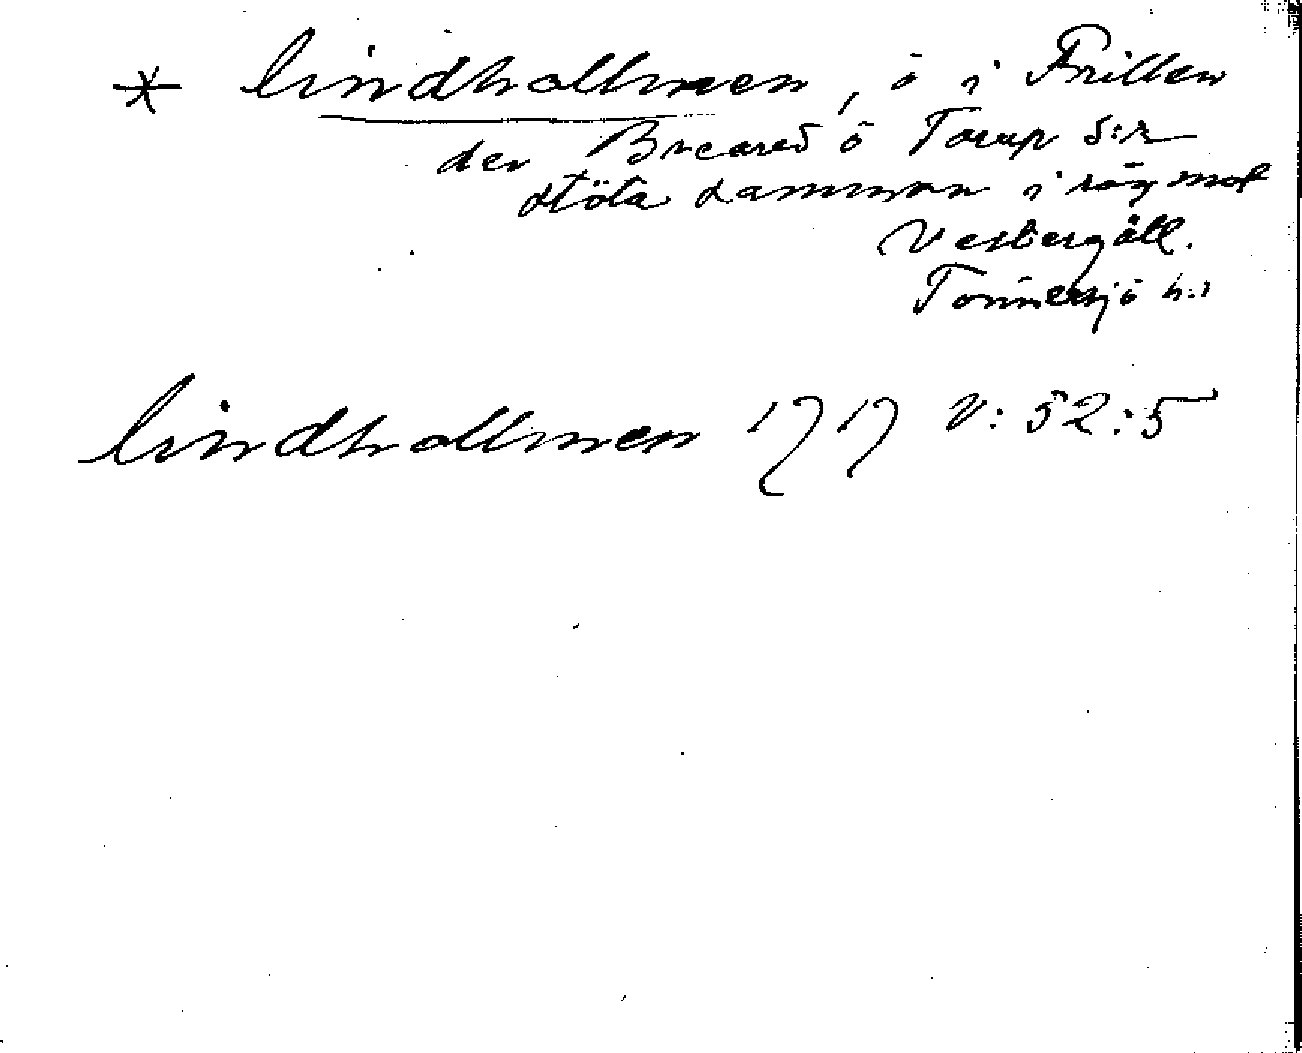 * Lindhollmen, ö i Frillen
der Breared ö Torup S:r
stöta samman i räg mot
Vestergåll.
Tönnersjö h:r
Lindhollmen 1717 V: 52:5